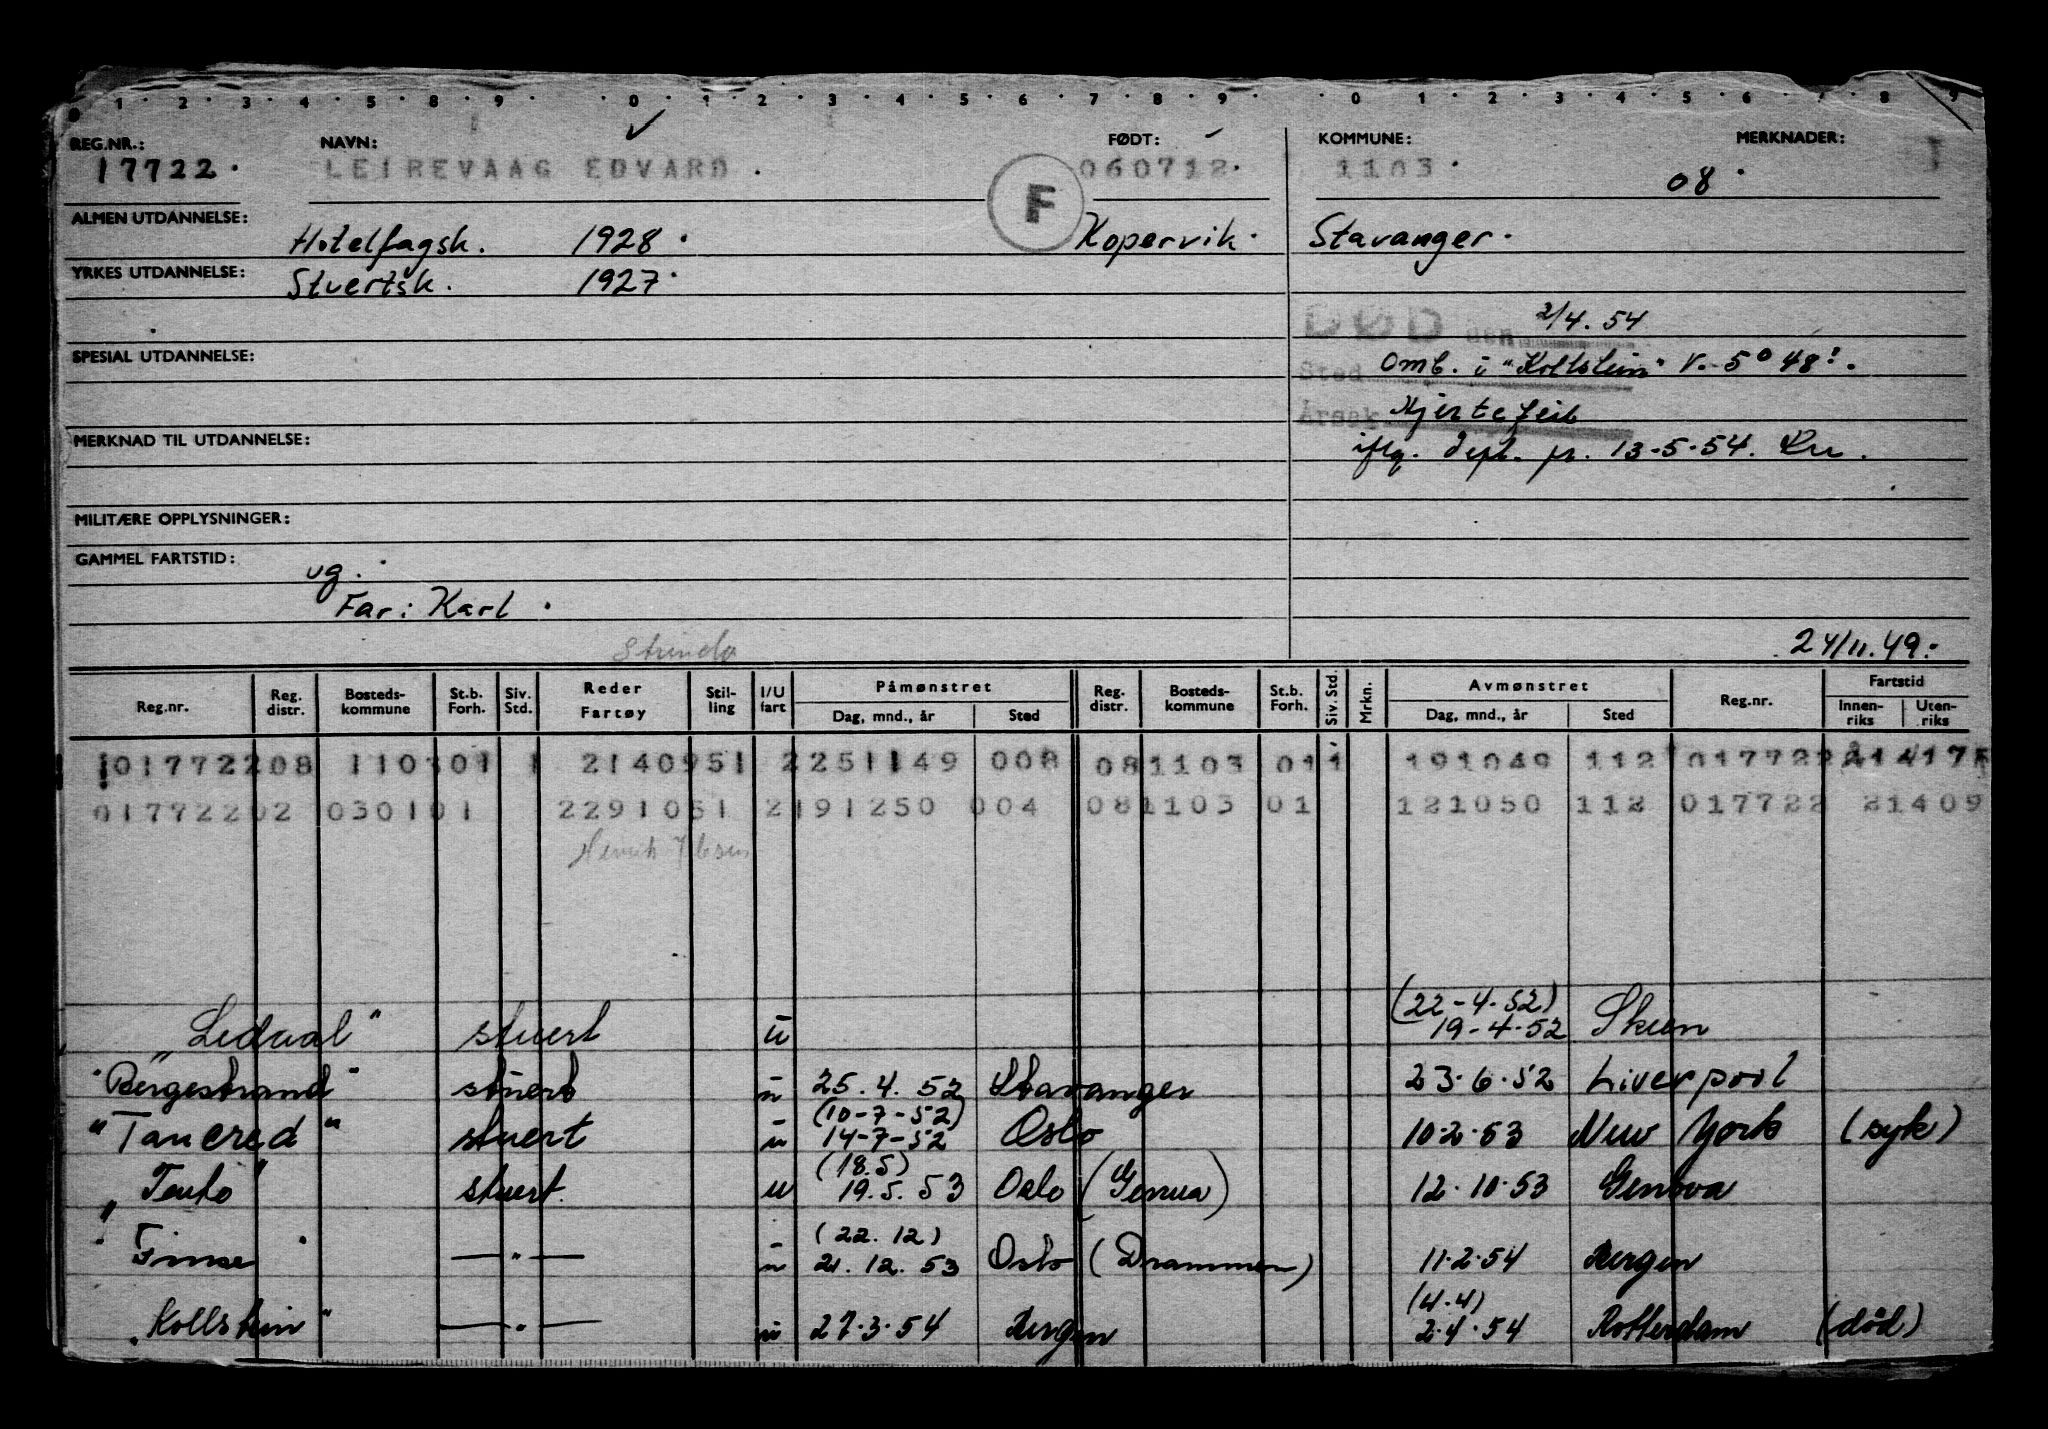 0 1 2 3 4 5 8 9 0 1 2 3 4 5 6 7 8 9 0 1 2 3 4 5 6 7 8 9
REG.NR.: NAVN: FØDT: KOMMUNE: MERKNADER:
17722. LEIREVAAG EDVARD. 060712. 1103. 08.
F
ALMEN UTDANNELSE: Hotelfagsk. 1928. Kopervik. Stavanger.
YRKES UTDANNELSE: Stuertsk. 1927.
DØD den 2/4. 54
SPESIAL UTDANNELSE:
Sted omb. i "Kollstein"
Årsak Hjertefeil
MERKNAD TIL UTDANNELSE:
iflg. dept. pr. 13-5-54.
MILITÆRE OPPLYSNINGER:
GAMMEL FARTSTID:
ug.
Far: Karl.
Strinda 24/11.49.-
Reg.nr. Reg. distr. Bosteds-kommune St.b. Forh. Siv. Std. Reder Fartøy Stil-ling I/U fart Påmønstret Dag, mnd., år Sted Reg. distr. Bosteds-kommune St.b. Forh. Siv. Std. Mrkn. Avmønstret Dag, mnd., år Sted Reg.nr. Fartstid Innen-riks Uten-riks
01772208 110301 1 2140951 2251149 008 081103 011 191049 112 017722
01772202 030101 2291051 2191250 004 081103 01 121050 112 017722 21409
Henrik Ibsen
(22-4-52)
"Ledaal" stuert u 19-4-52 Skien
"Bergestrand" stuert u 25.4.52 Stavanger 23.6.52 Liverpool
(10-7-52)
"Tancred" stuert u 14-7-52 Oslo 10.2.53 New York (syk)
(18.5)
stuert. u 19.5.53 Oslo (Genua) 12.10.53 Genova
(22.12)
"Finse" —"— u 21.12.53 Oslo (Drammen) 11.2.54 Bergen
(4.4)
"Kollstein" —"— u 27.3.54 Bergen 2.4.54 Rotterdam (død)